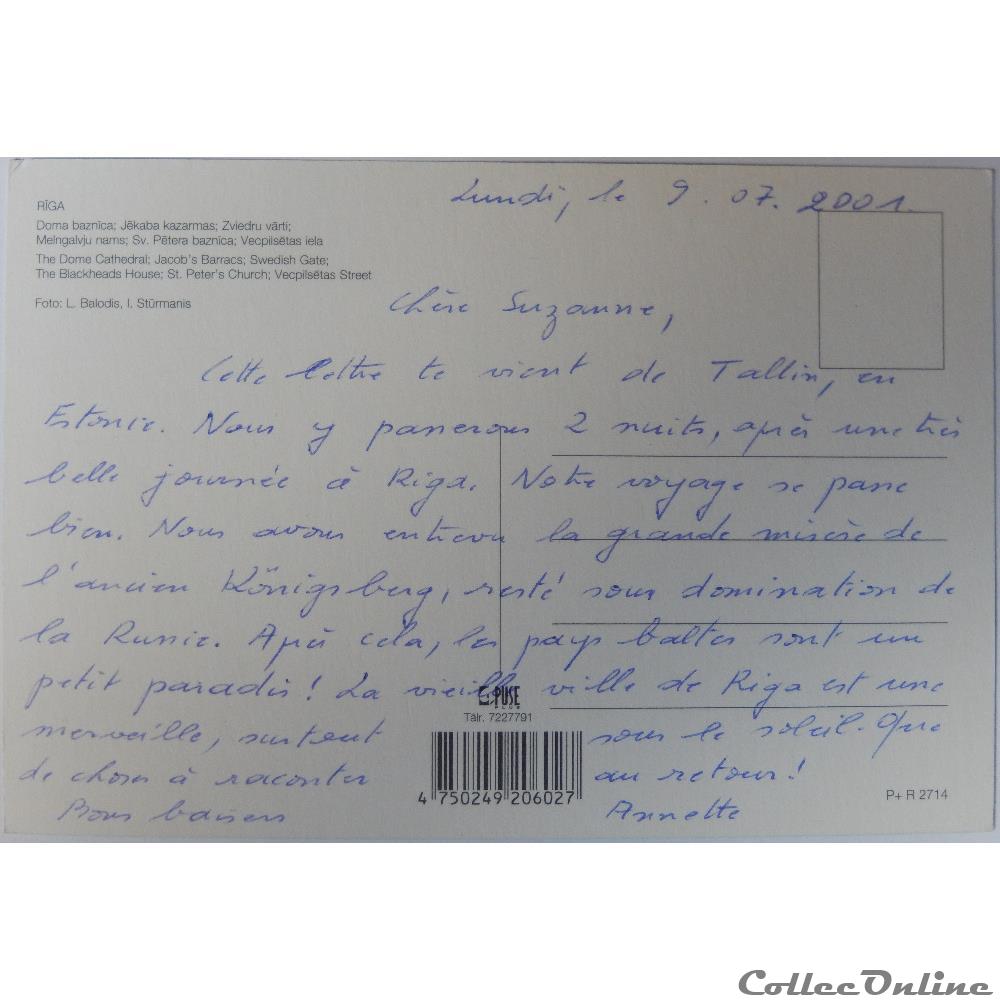 Lundi, le 9.07.2001.
RĪGA
Doma baznīca; Jēkaba kazarmas; Zviedru vārti;
Melngalvju nams; Sv. Pētera baznīca; Vecpilsētas iela
The Dome Cathedral; Jacob's Barracs; Swedish Gate;
The Blackheads House; St. Peter's Church; Vecpilsētas Street
Foto: L. Balodis, I. Stūrmanis
Chère Suzanne,
Cette lettre te vient de Tallin, en
Estonie. Nous y passerons 2 nuits, après une très
belle journée à Riga. Notre voyage se passe
bien. Nous avons entrevu la grande misère de
l'ancien Königsberg, resté sous domination de
la Russie. Après cela, les pays baltes sont un
petit paradis! La vieille ville de Riga est une
merveille, surtout sous le soleil. Que
de choses à raconter au retour!
Bons baisers Annette
PUSE
PLUS
Tālr. 7227791
4 750249 206027
P+ R 2714
CollecOnline